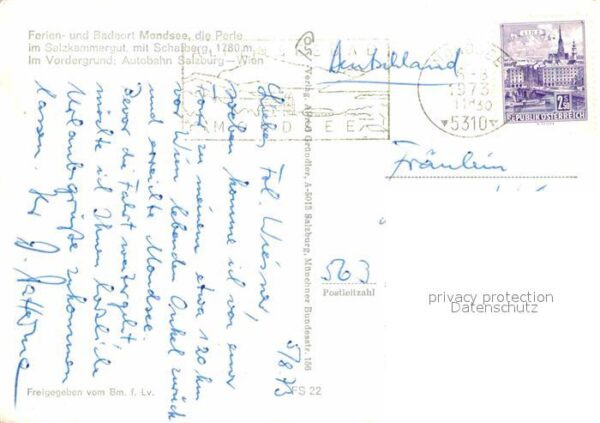 Ferien- und Badeort Mondsee, die Perle
im Salzkammergut, mit Schafberg, 1780 m.
Im Vordergrund: Autobahn Salzburg—Wien
Deutschland
1973
5310
LINZ
2.50
REPUBLIK ÖSTERREICH
Fräulein
563
Postleitzahl
privacy protection
Datenschutz
5/8 73
Liebes Frl. Wiesner!
soeben komme ich von einer
Tour zu meinem etwa 120 km
vor Wien lebenden Onkel zurück
und erreichte Mondsee.
Bevor die Fahrt weitergeht
möchte ich Ihnen herzliche
Urlaubsgrüße zukommen
lassen. Ihr
Gründler, A-5012 Salzburg, Münchner Bundesstr. 156
Freigegeben vom Bm. f. Lv.
FS 22